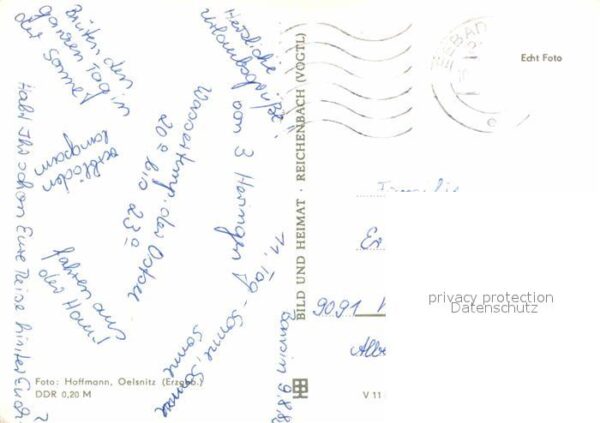 Brüten den
ganzen Tag in
der Sonne!
Herzliche
Urlaubsgrüße
von 3 Heringen
Wassertemp. der Ostsee
20° bis 23°
11. Tag - Sonne, Sonne
Sonne
verblöden
langsam
fahren aus
der Haut!
Habt Ihr schon Eure Reise hinter Euch
?
Bansin 9.8.82
BILD UND HEIMAT · REICHENBACH (VOGTL)
Echt Foto
Familie
9091
privacy protection
Datenschutz
Foto: Hoffmann, Oelsnitz (Erzgeb.)
DDR 0,20 M
V 11